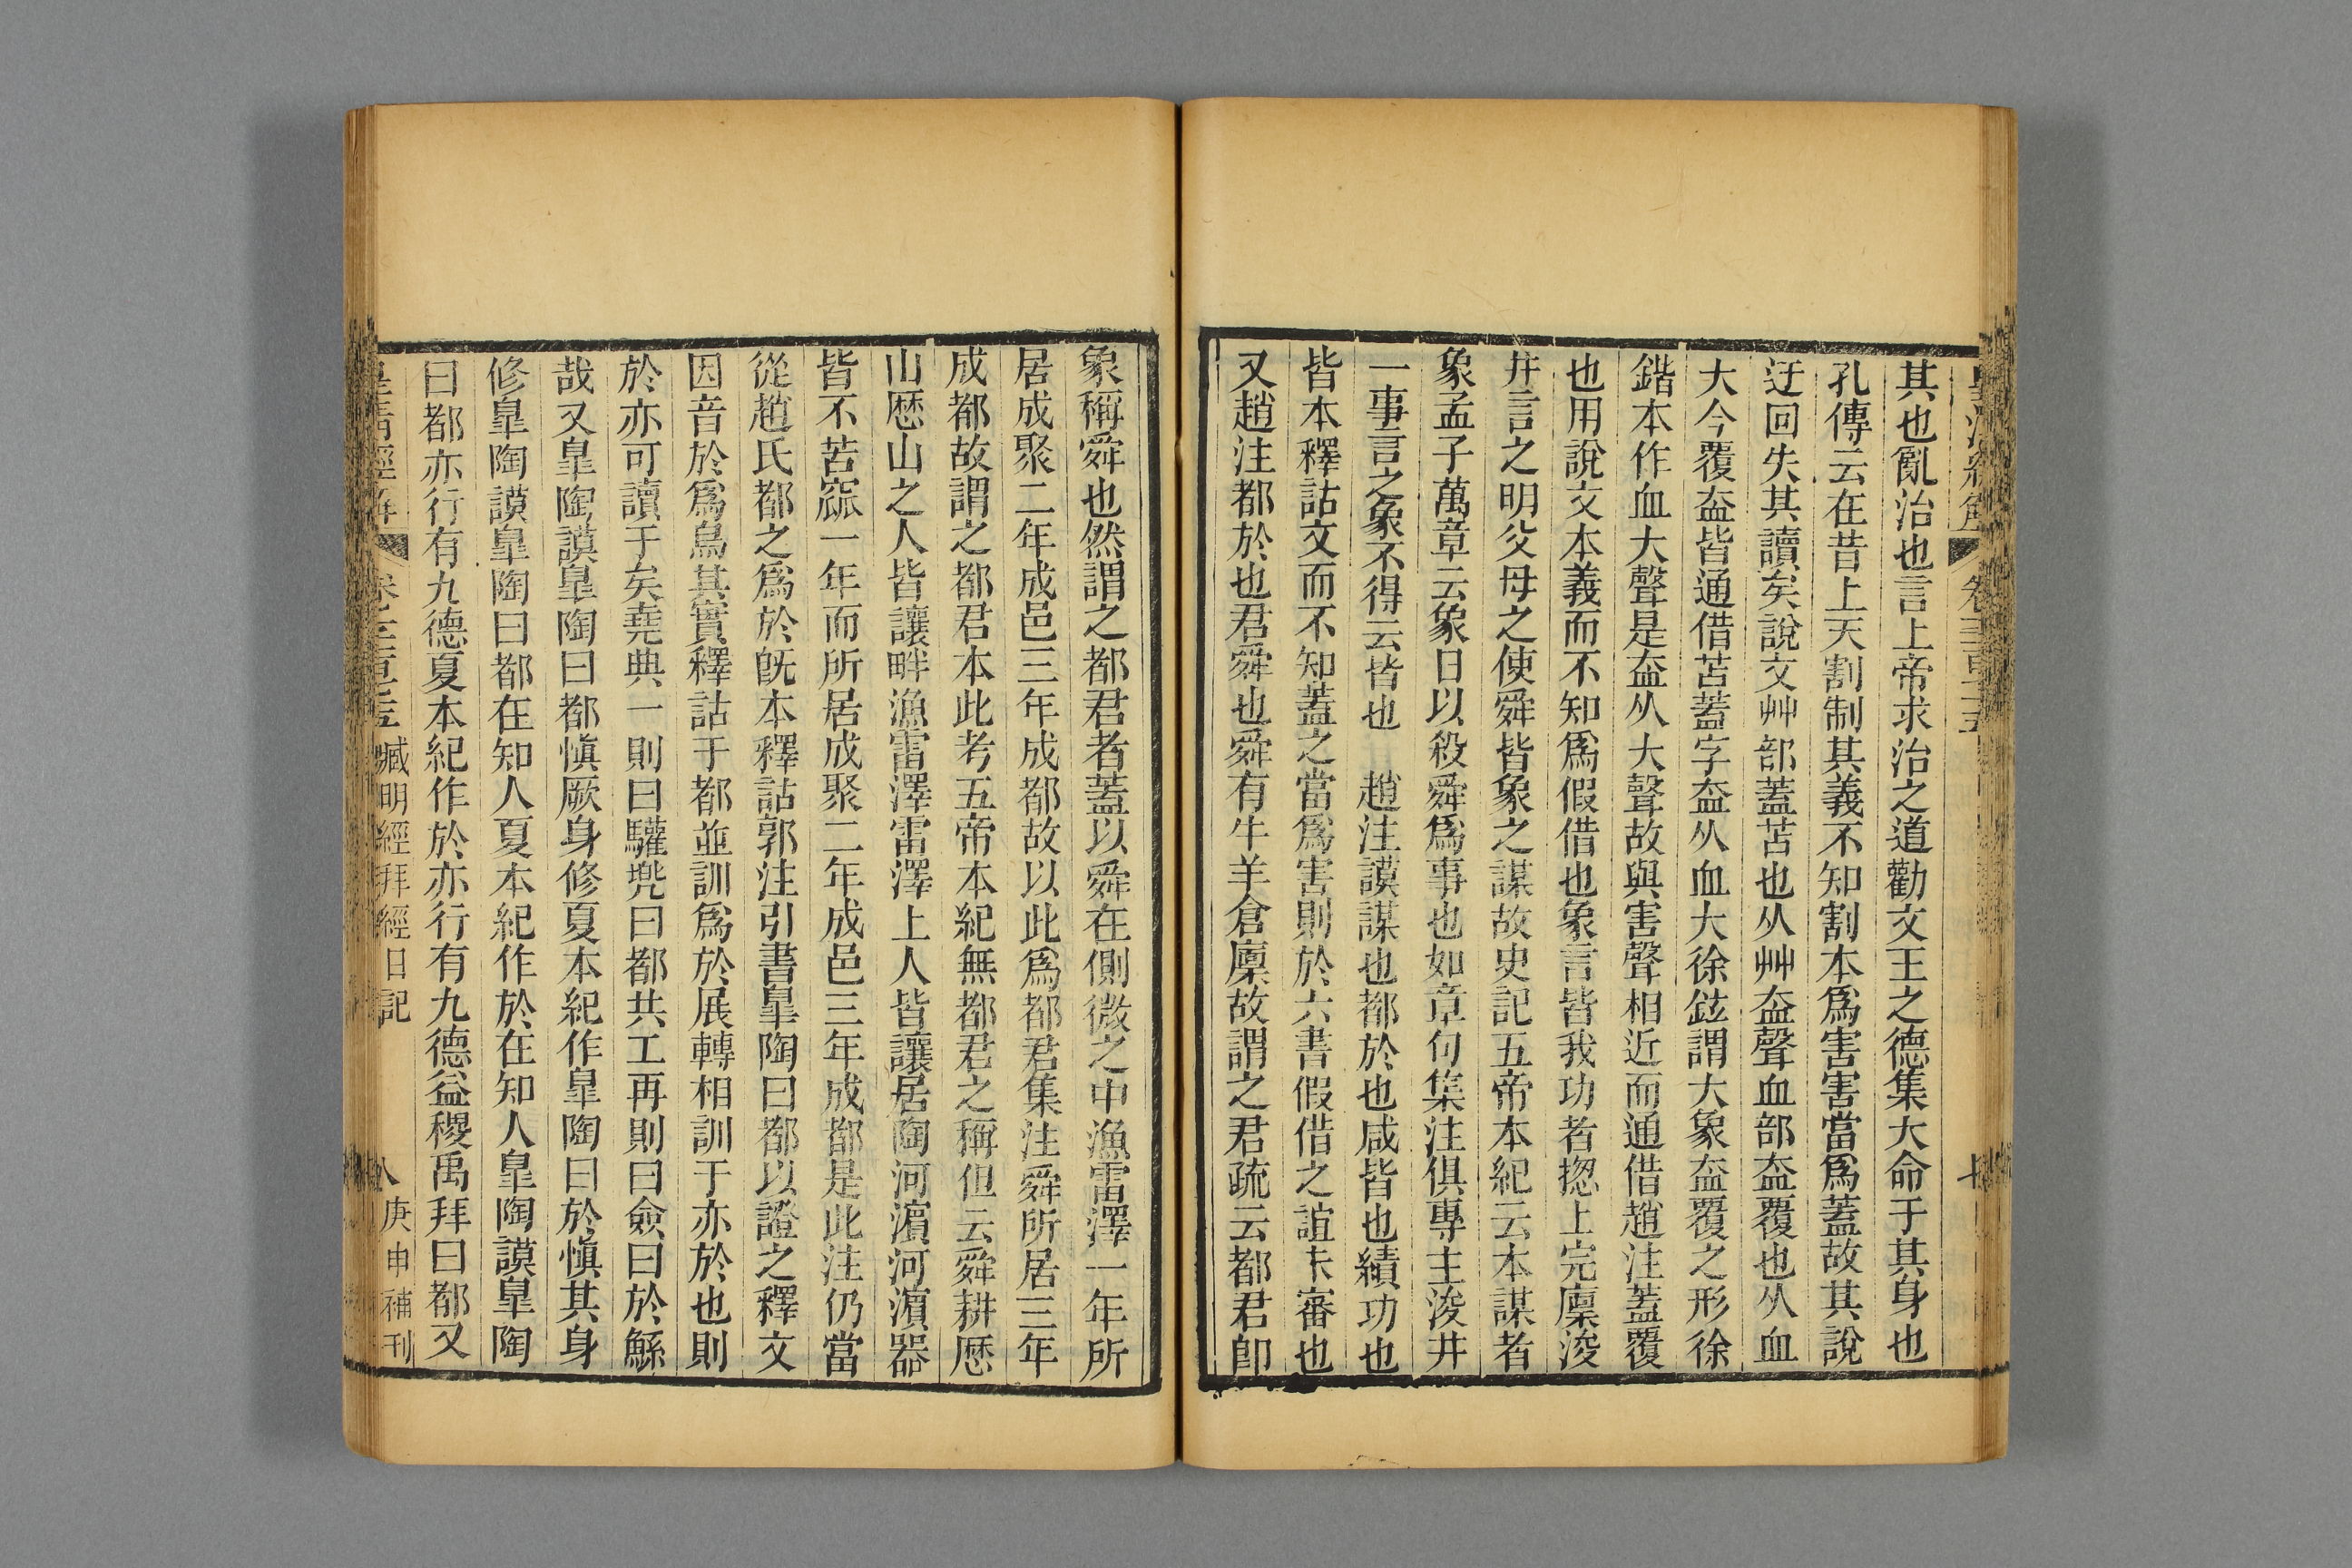 其也亂治也言上帝求治之道勸文王之德集大命于其身也
孔傳云在昔上天割制其義不知割本爲害害當爲蓋故其說
迂回失其讀矣說文艸部蓋苫也从艸盇聲血部盇覆也从血
大今覆盇皆通借苫蓋字盇从血大徐鉉謂大象盇覆之形徐
鍇本作血大聲是盇从大聲故與害聲相近而通借趙注蓋覆
也用說文本義而不知爲假借也象言皆我功者揔上完廩浚
井言之明父母之使舜皆象之謀故史記五帝本紀云本謀者
象孟子萬章云象日以殺舜爲事也如章句集注俱專主浚井
一事言之象不得云皆也　趙注謨謀也都於也咸皆也績功也
皆本釋詁文而不知蓋之當爲害則於六書假借之誼未審也
又趙注都於也君舜也舜有牛羊倉廩故謂之君疏云都君卽
象稱舜也然謂之都君者蓋以舜在側微之中漁雷澤一年所
居成聚二年成邑三年成都故以此爲都君集注舜所居三年
成都故謂之都君本此考五帝本紀無都君之稱但云舜耕歷
山歷山之人皆讓畔漁雷澤雷澤上人皆讓居陶河濱河濱器
皆不苦窳一年而所居成聚二年成邑三年成都是此注仍當
從趙氏都之爲於旣本釋詁郭注引書皐陶曰都以證之釋文
因音於爲烏其實釋詁于都並訓爲於展轉相訓于亦於也則
於亦可讀于矣堯典一則曰驩兠曰都共工再則曰僉曰於鯀
哉又皐陶謨皐陶曰都愼厥身修夏本紀作皐陶曰於愼其身
修皐陶謨皐陶曰都在知人夏本紀作於在知人皐陶謨皐陶
曰都亦行有九德夏本紀作於亦行有九德益稷禹拜曰都又
臧明經拜經日記
八
庚申補刊